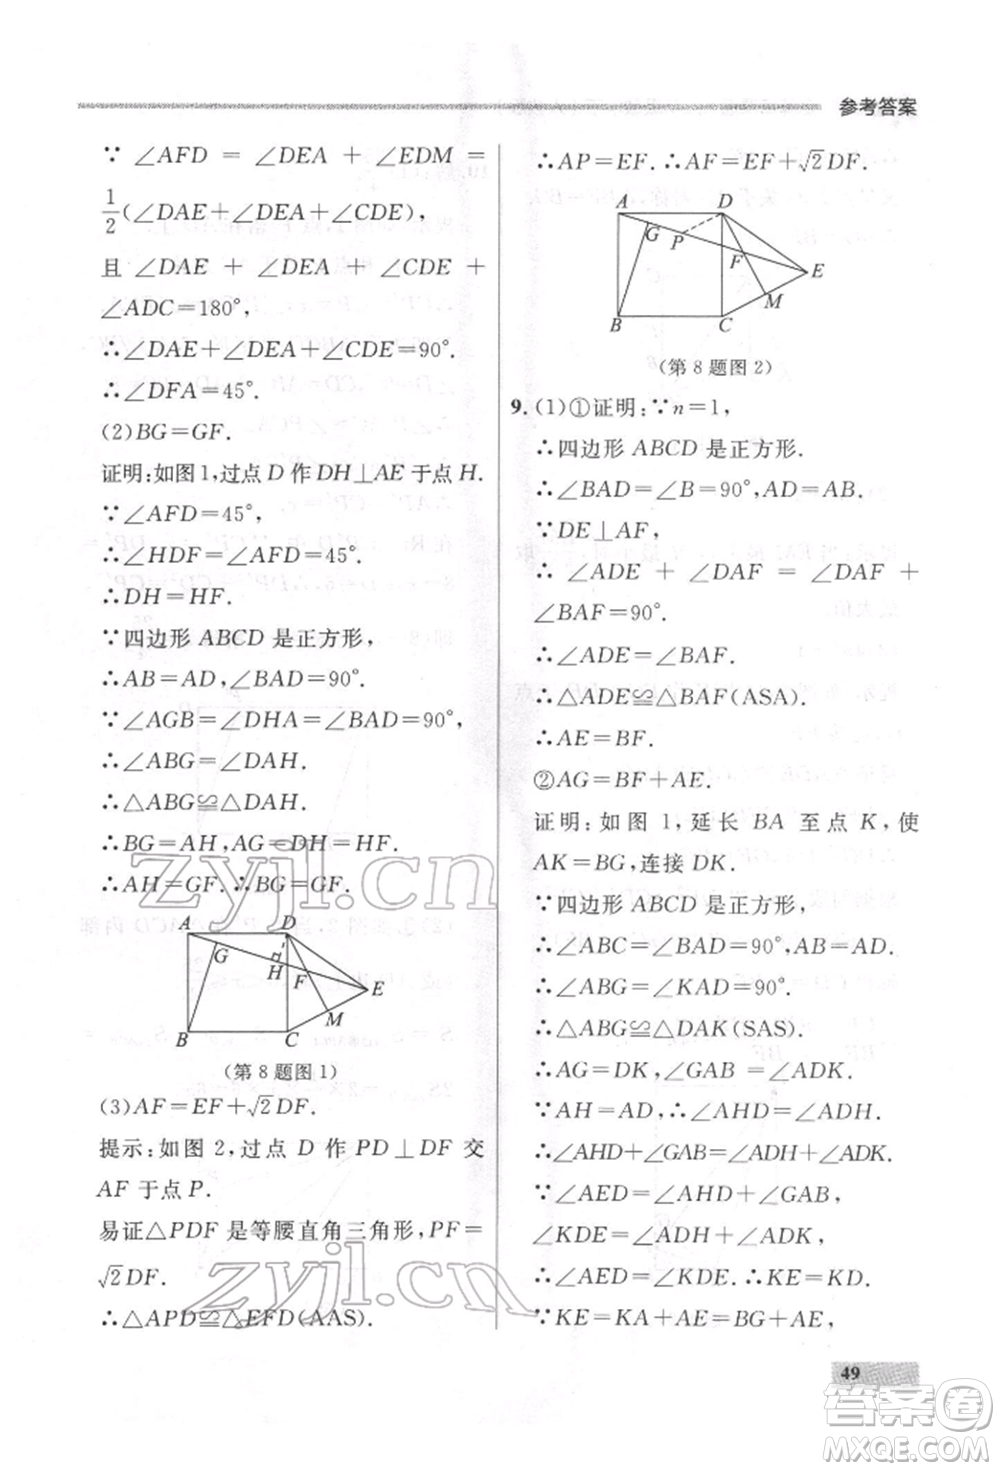 参考答案
∵ ∠AFD = ∠DEA + ∠EDM =
1/2(∠DAE+∠DEA+∠CDE),
且 ∠DAE + ∠DEA + ∠CDE +
∠ADC=180°,
∴∠DAE+∠DEA+∠CDE=90°.
∴∠DFA=45°.
(2)BG=GF.
证明:如图1,过点 D 作 DH⊥AE 于点 H.
∵∠AFD=45°,
∴∠HDF=∠AFD=45°.
∴DH=HF.
∵四边形 ABCD 是正方形,
∴AB=AD,∠BAD=90°.
∵∠AGB=∠DHA=∠BAD=90°,
∴∠ABG=∠DAH.
∴△ABG≌△DAH.
∴BG=AH,AG=DH=HF.
∴AH=GF.∴BG=GF.
A D G H F E M B C
(第8题图1)
(3)AF=EF+√2DF.
提示:如图2,过点 D 作 PD⊥DF 交
AF 于点 P.
易证△PDF 是等腰直角三角形,PF=
√2DF.
∴△APD≌△EFD(AAS).
∴AP=EF.∴AF=EF+√2DF.
A D G P F E M B C
(第8题图2)
9.(1)①证明:∵n=1,
∴四边形 ABCD 是正方形.
∴∠BAD=∠B=90°,AD=AB.
∵DE⊥AF,
∴∠ADE + ∠DAF = ∠DAF +
∠BAF=90°.
∴∠ADE=∠BAF.
∴△ADE≌△BAF(ASA).
∴AE=BF.
②AG=BF+AE.
证明:如图1,延长 BA 至点 K,使
AK=BG,连接 DK.
∵四边形 ABCD 是正方形,
∴∠ABC=∠BAD=90°,AB=AD.
∴∠ABG=∠KAD=90°.
∴△ABG≌△DAK(SAS).
∴AG=DK,∠GAB=∠ADK.
∵AH=AD,∴∠AHD=∠ADH.
∴∠AHD+∠GAB=∠ADH+∠ADK.
∵∠AED=∠AHD+∠GAB,
∠KDE=∠ADH+∠ADK,
∴∠AED=∠KDE.∴KE=KD.
∵KE=KA+AE=BG+AE,
49
zyjl.cn
zyjl.cn
答案卷
MXQE.COM